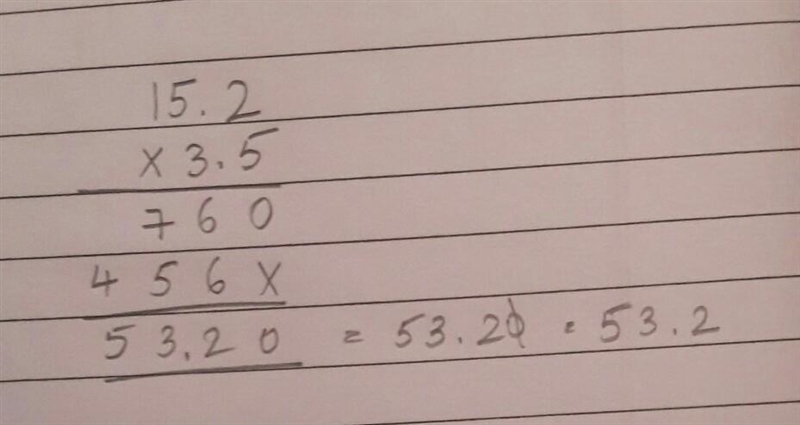 15.2
x 3.5
7 6 0
4 5 6 x
5 3.2 0 = 53.20 = 53.2